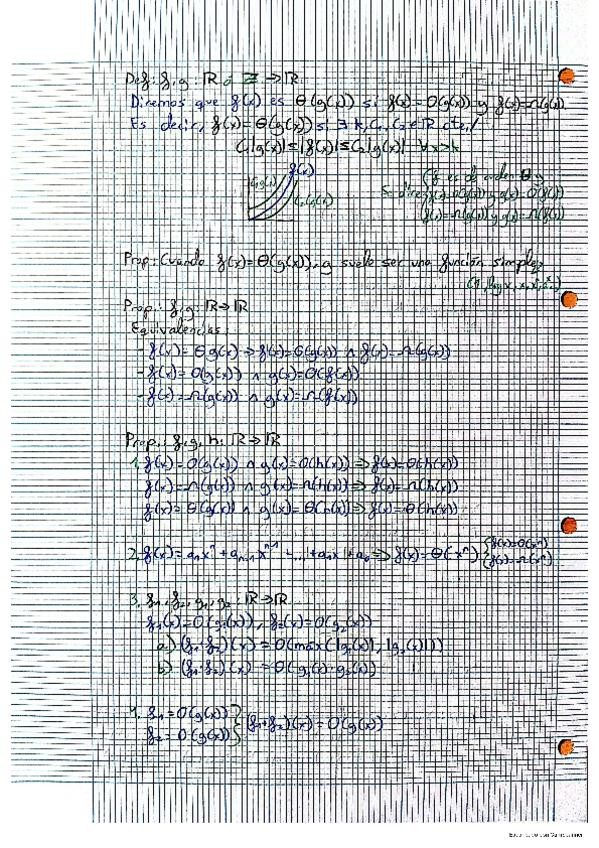 Def: f, g: ℝ ó ℤ → ℝ
Diremos que f(x) es Θ(g(x)) si f(x) = O(g(x)) y f(x) = Ω(g(x)).
Es decir, f(x) = Θ(g(x)) si ∃ k, C₁, C₂ ∈ ℝ cte /
C₁|g(x)| ≤ |f(x)| ≤ C₂|g(x)| ∀x>k
f(x)
C₁g(x)
C₂g(x)
(f es de orden Θ g
Se dice f(x)=O(g(x)) y g(x)=O(f(x))
f(x)=Ω(g(x)) y g(x)=Ω(f(x))
Prop: Cuando f(x) = Θ(g(x)), g suele ser una función simple
(1, log x, x, x², 2ˣ...)
Prop.: f, g: ℝ → ℝ
Equivalencias:
- f(x) = Θ g(x) ⇒ f(x) = O(g(x)) ∧ f(x) = Ω(g(x))
- f(x) = O(g(x)) ∧ g(x) = O(f(x))
- f(x) = Ω(g(x)) ∧ g(x) = Ω(f(x))
Prop.: f, g, h: ℝ → ℝ
1. f(x) = O(g(x)) ∧ g(x) = O(h(x)) ⇒ f(x) = O(h(x))
f(x) = Ω(g(x)) ∧ g(x) = Ω(h(x)) ⇒ f(x) = Ω(h(x))
f(x) = Θ(g(x)) ∧ g(x) = Θ(h(x)) ⇒ f(x) = Θ(h(x))
2. f(x) = aₙxⁿ + aₙ₋₁xⁿ⁻¹ + ... + a₁x + a₀ ⇒ f(x) = Θ(xⁿ) { f(x) = O(xⁿ)
f(x) = Ω(xⁿ)
3. f₁, f₂, g₁, g₂: ℝ → ℝ
f₁(x) = O(g₁(x)), f₂(x) = O(g₂(x))
a) (f₁+f₂)(x) = O(máx(|g₁(x)|, |g₂(x)|))
b) (f₁·f₂)(x) = O(g₁(x)·g₂(x))
4. f₁ = O(g(x)) } (f₁+f₂)(x) = O(g(x))
f₂ = O(g(x))